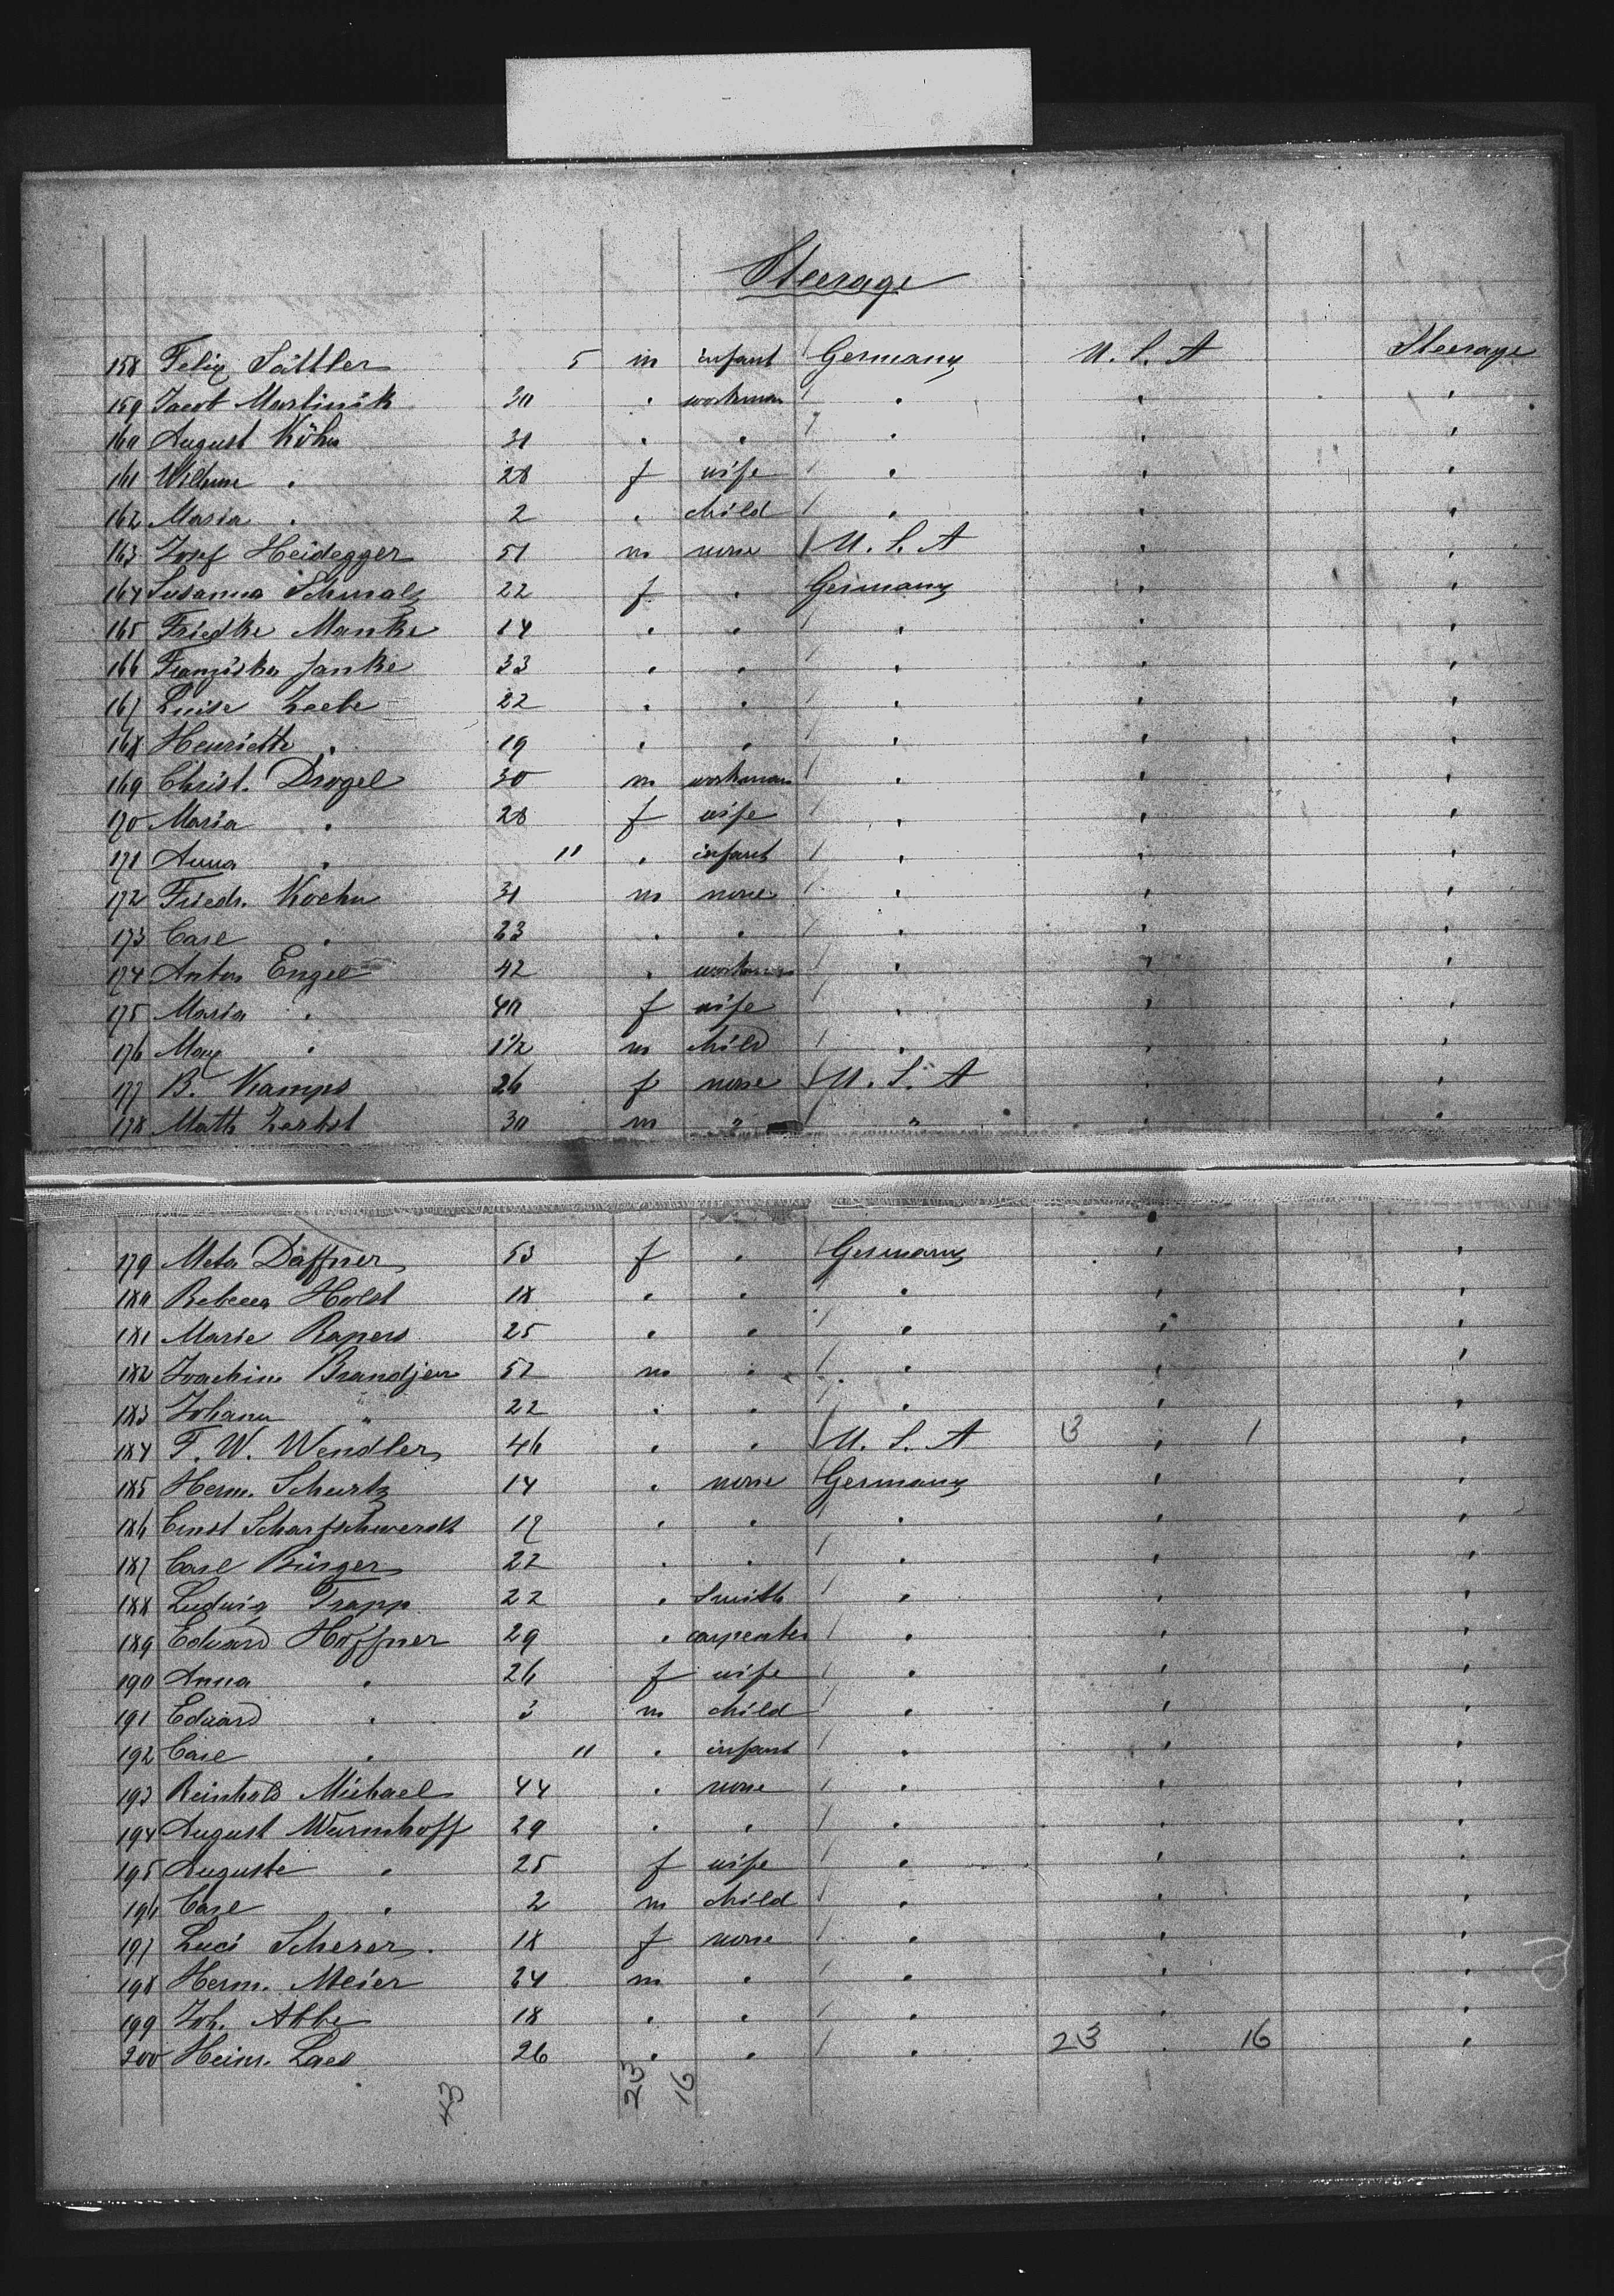 Steerage
158 Felix Sättler 5 m infant Germany U. S. A Steerage
159 Jacob Martinik 30 " workman " " "
160 August Köhn 31 " " " " "
161 Wilhme " 28 f wife " " "
162 Maria " 2 " child " " "
163 Josef Heidegger 51 m none U. S. A " "
164 Susanna Schmalz 22 f " Germany " "
165 Friedke Manke 14 " " " " "
166 Franziska Janke 33 " " " " "
167 Luise Zeebe 22 " " " " "
168 Henriette " 19 " " " " "
169 Christ. Drogel 30 m workman " " "
170 Maria " 28 f wife " " "
171 Anna " 11 " infant " " "
172 Friedr. Koehn 31 m none " " "
173 Carl " 23 " " " " "
174 Anton Engel 42 " workman " " "
175 Maria " 40 f wife " " "
176 Max " 1 1/2 m child " " "
177 B. Kamps 26 f none U. S. A " "
178 Math Zerbst 30 m " " " "
179 Meta Daffner 53 f " Germany " "
180 Rebecca Holst 18 " " " " "
181 Marie Rapers 25 " " " " "
182 Joachim Brandjen 52 m " " " "
183 Johann " 22 " " " " "
184 F. W. Wendler 46 " " U. S. A 3 " 1 "
185 Herm. Schurtz 14 " none Germany " "
186 Ernst Scharfschwerdt 17 " " " " "
187 Carl Bürger 22 " " " " "
188 Ludwig Trapp 22 " Smith " " "
189 Eduard Höffner 29 " carpenter " " "
190 Anna " 26 f wife " " "
191 Eduard " 3 m child " " "
192 Carl " 11 " infant " " "
193 Reinhold Michael 44 " none " " "
194 August Wurmhoff 29 " " " " "
195 Auguste " 25 f wife " " "
196 Carl " 2 m child " " "
197 Luci Scherer 18 f none " " "
198 Herm. Meier 24 m " " " "
199 Joh. Abbe 18 " " " " "
200 Heinr. Laes 26 " " " 23 " 16 "
43 23 16